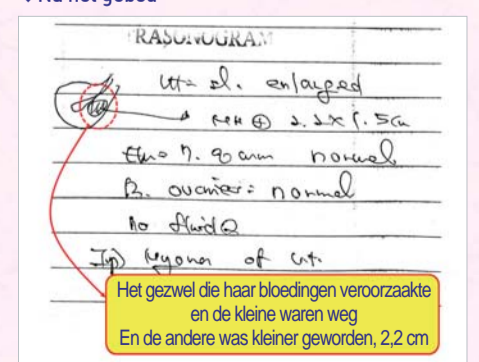 Na het gebed
RASONOGRAM
Ut- sl. enlarged
⊕ 2.2 x 1.5cm
normal
B. ovaries: normal
no fluid
Imp) Myoma of ut.
Het gezwel die haar bloedingen veroorzaakte
en de kleine waren weg
En de andere was kleiner geworden, 2,2 cm